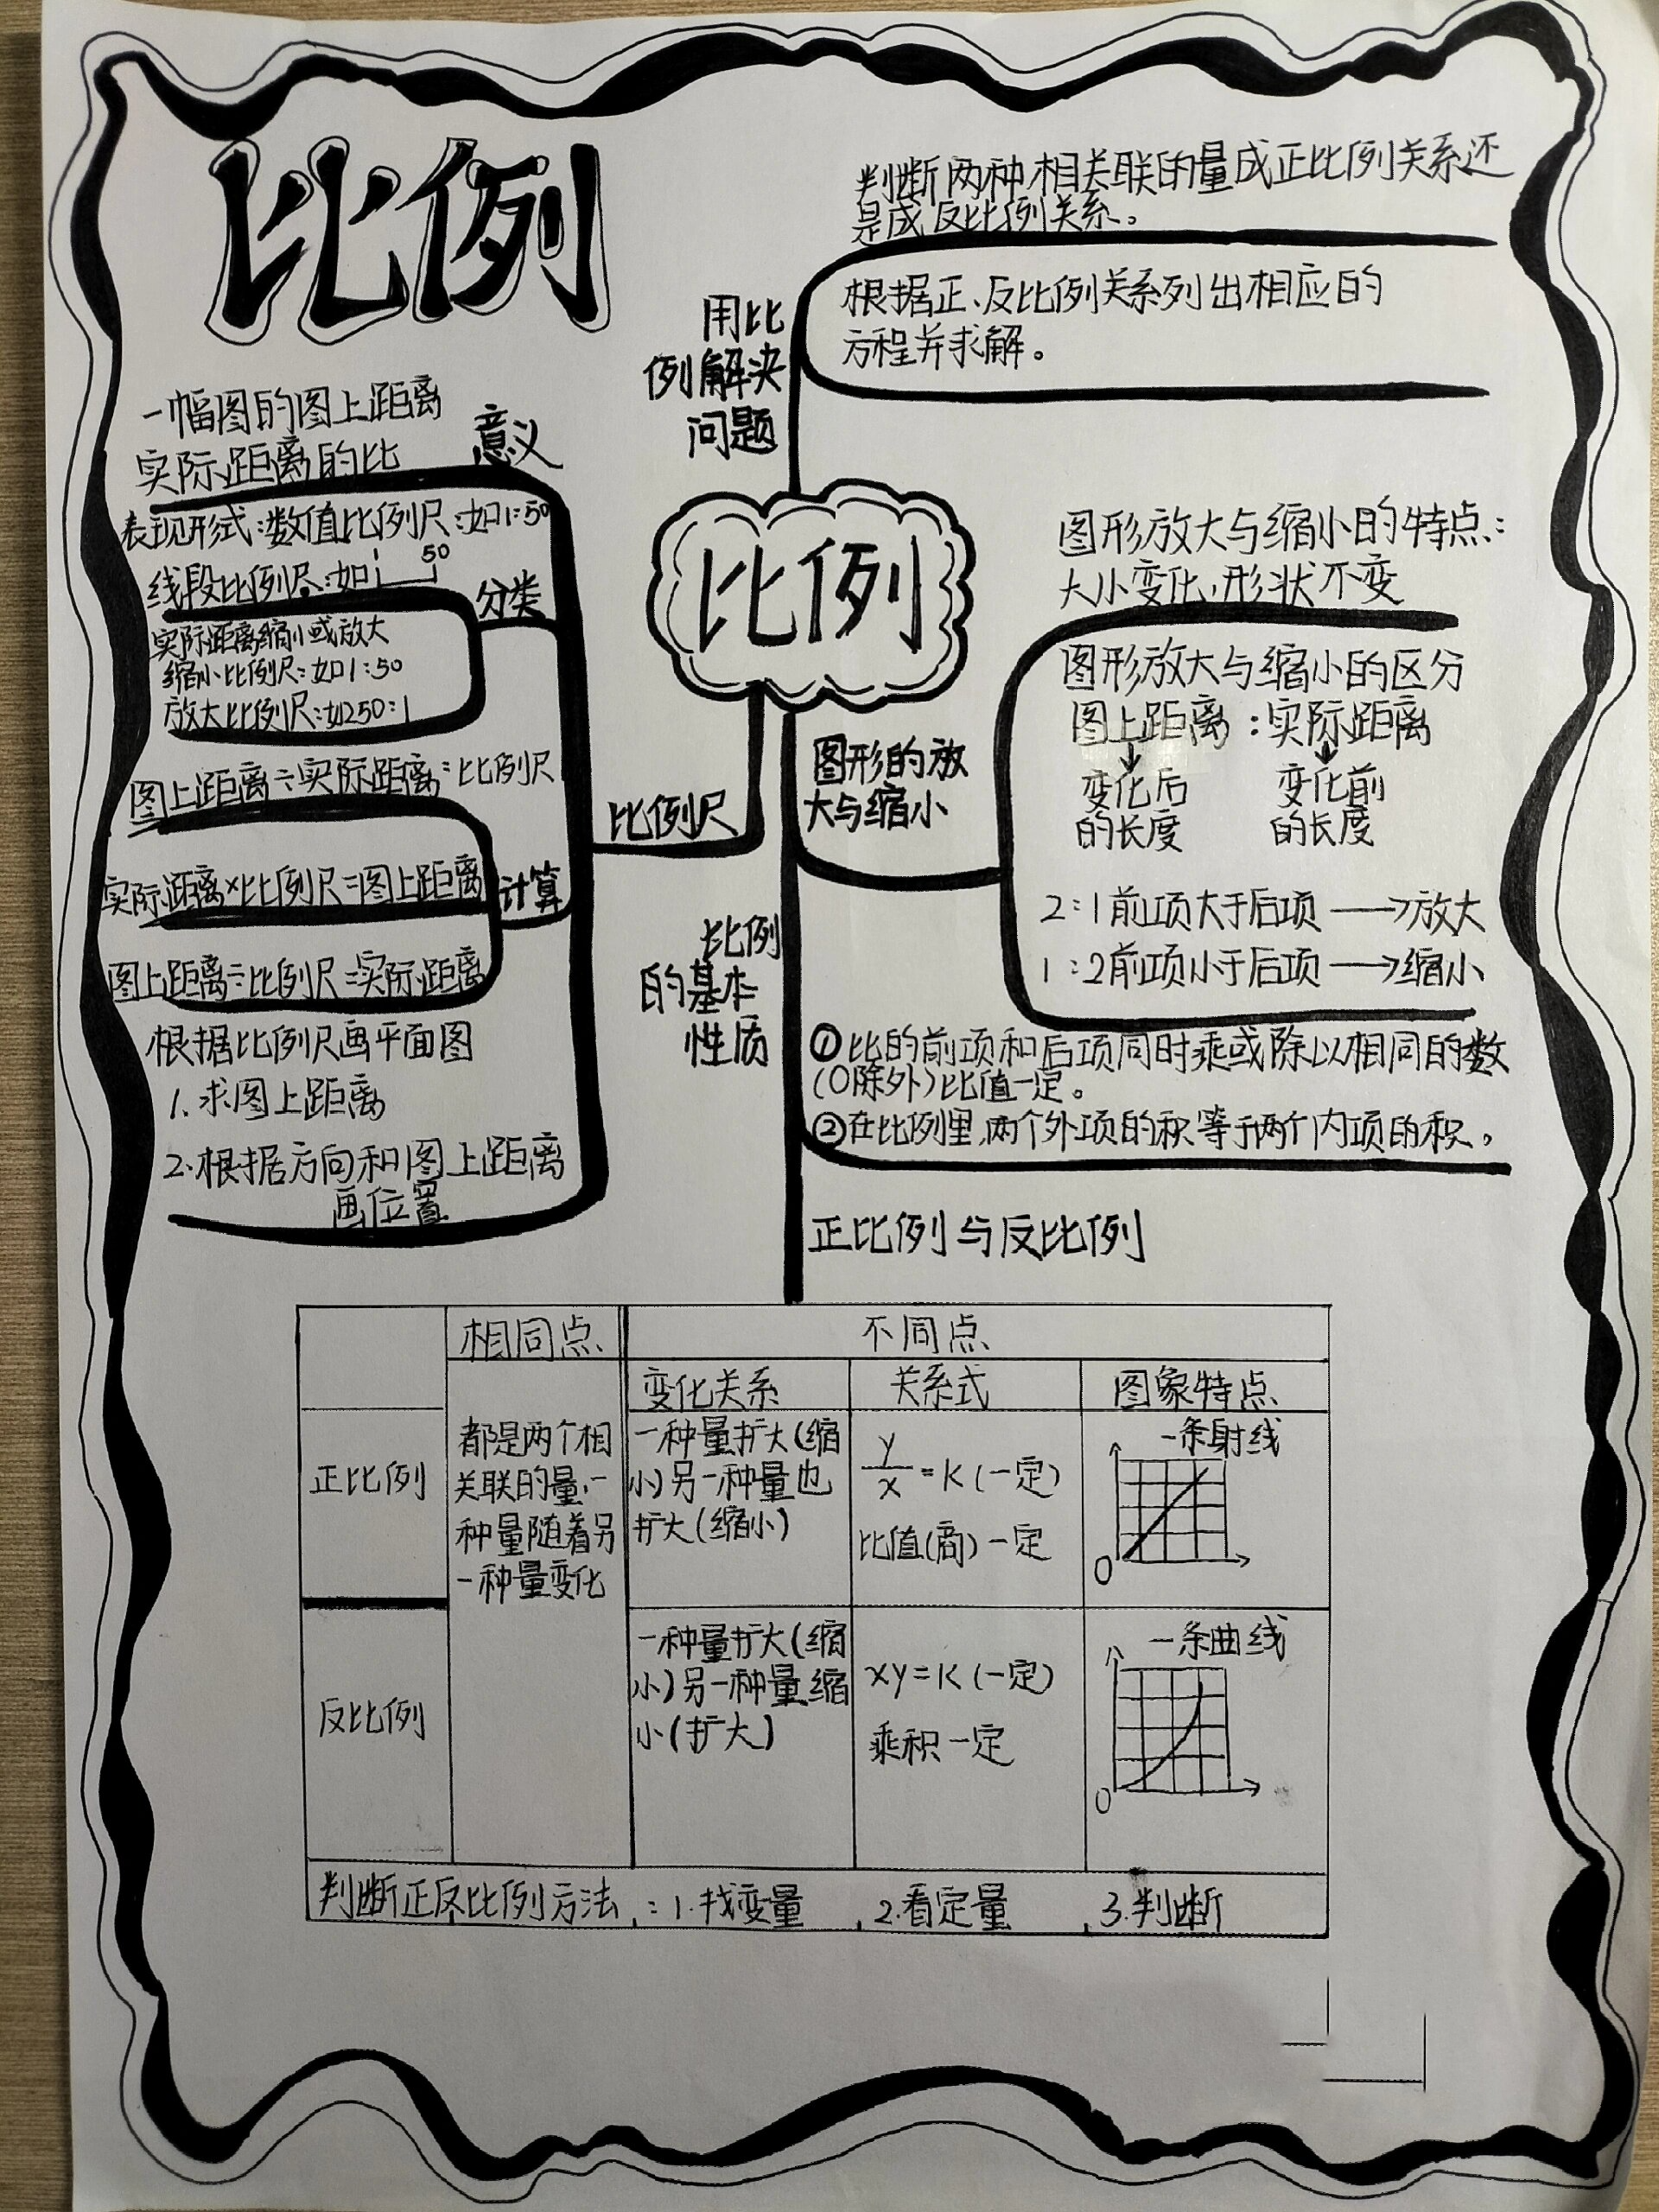 比例
判断两种相关联的量成正比例关系还
是成反比例关系。
根据正、反比例关系列出相应的
方程并求解。
用比
例解决
问题
一幅图的图上距离
实际距离的比
意义
表现形式:数值比例尺:如1:50
线段比例尺:如
50
分类
实际距离缩小或放大
缩小比例尺:如1:50
放大比例尺:如250:1
图上距离÷实际距离=比例尺
实际距离×比例尺=图上距离
计算
图上距离÷比例尺=实际距离
根据比例尺画平面图
1.求图上距离
2.根据方向和图上距离
画位置
比例尺
比例
图形的放
大与缩小
图形放大与缩小的特点:
大小变化,形状不变
图形放大与缩小的区分
图上距离:实际距离
变化后 变化前
的长度 的长度
2:1前项大于后项→放大
1:2前项小于后项→缩小
比例
的基本
性质
①比的前项和后项同时乘或除以相同的数
(0除外)比值一定。
②在比例里,两个外项的积等于两个内项的积。
正比例与反比例
相同点 不同点
变化关系 关系式 图象特点
正比例
都是两个相
关联的量,一
种量随着另
一种量变化
一种量扩大(缩
小)另一种量也
扩大(缩小)
y/x=K(一定)
比值(商)一定
一条射线
0
反比例
一种量扩大(缩
小)另一种量缩
小(扩大)
xy=K(一定)
乘积一定
一条曲线
0
判断正反比例方法:1.找变量 2.看定量 3.判断